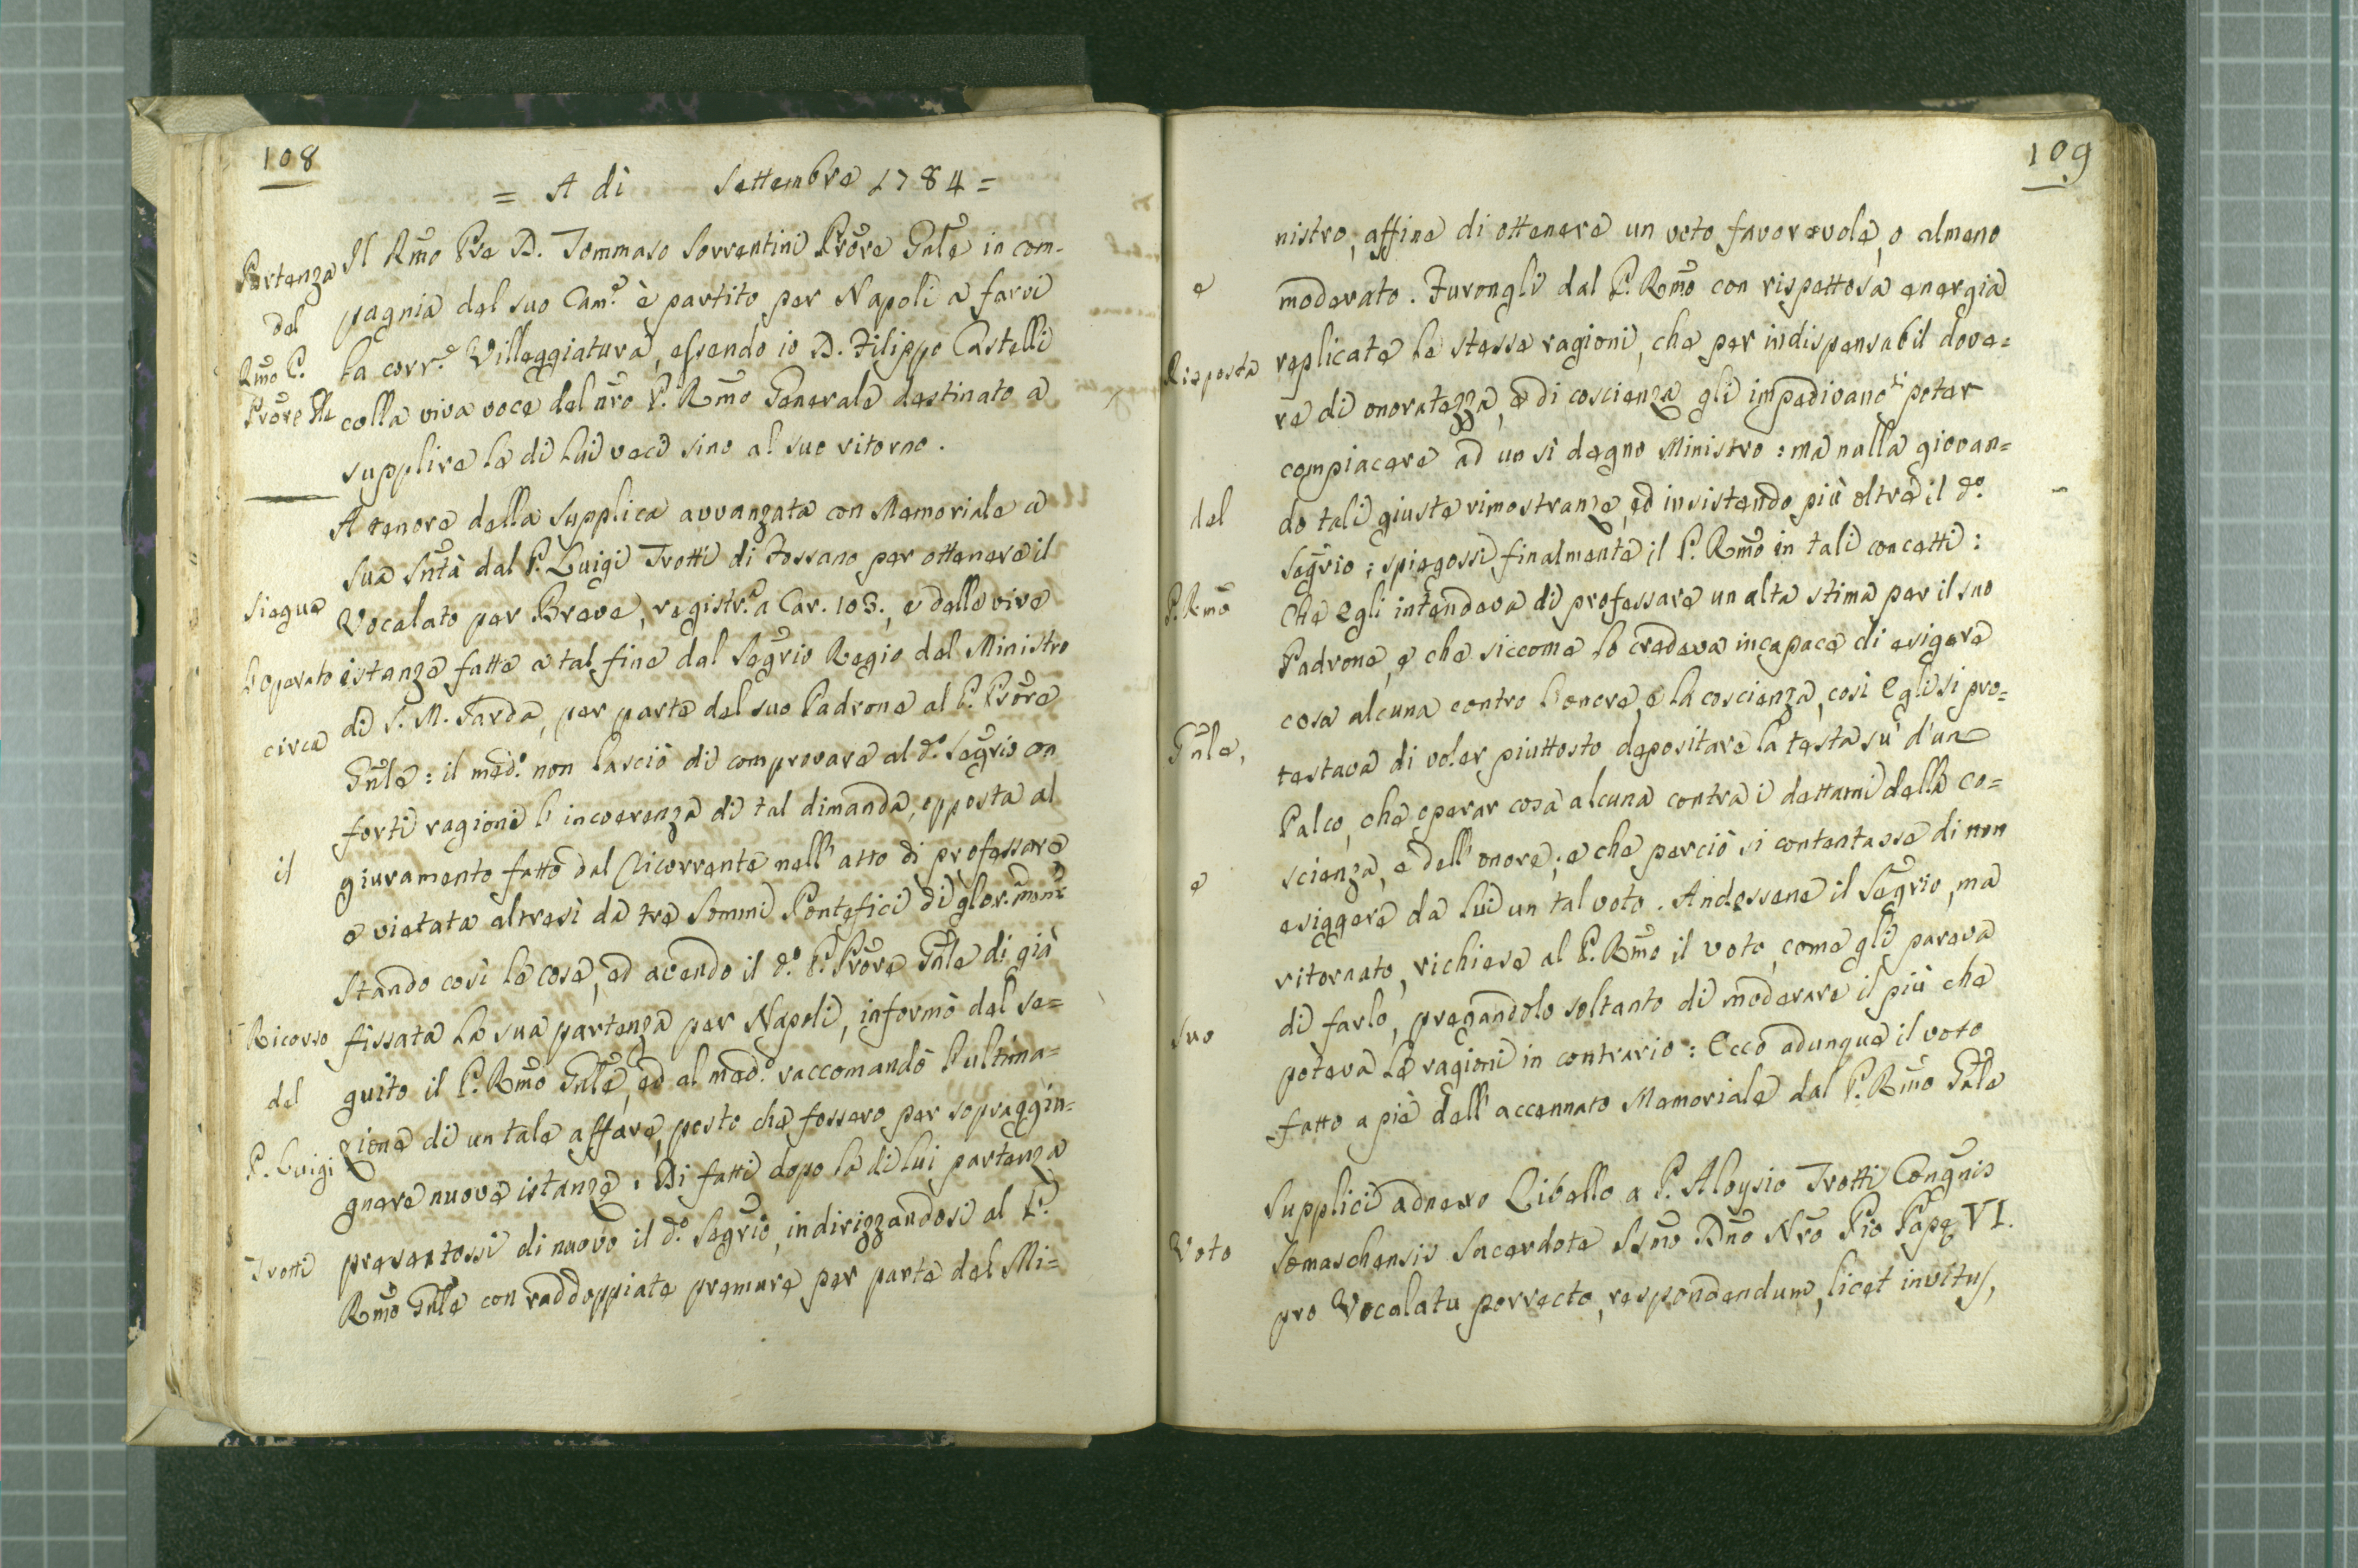 108
= A di Settembre 1784 =
Partenza
del
Rmo P.
Prore Gle
Il Rmo Pre D. Tommaso Sorrentini Prore Gnle in com-
pagnia del suo Cam.e è partito per Napoli a farvi
la corr.e Villeggiatura, essendo io D. Filippo Castelli
colla viva voce del nro P. Rmo Generale destinato a
supplire le di lui veci sino al suo ritorno.
Siegue
l'operato
circa
il
Ricorso
del
P. Luigi
Trotti
A tenore della supplica avvanzata con Memoriale a
Sua Sntà dal P. Luigi Trotti di Fossano per ottenere il
Vocalato per Breve, registr.o a Car. 103., e delle vive
istanze fatte a tal fine dal Segrio Regio del Ministro
di S. M. Sarda, per parte del suo Padrone al P. Prore
Gnle: il med.o non lasciò di comprovare al d.o Segrio con
forti ragioni l'incoerenza di tal dimanda, opposta al
giuramento fatto dal Ricorrente nell'atto di professare
e vietata altresì da tre Sommi Pontefici di glor. mem.
Stando così le cose, ed avendo il d.o P. Prore Gnle di già
fissata la sua partenza per Napoli, informò del se=
guito il P. Rmo Gnle, ed al med.o raccomandò l'ultima=
zione di un tale affare, posto che fossero per sopraggiu=
gnere nuove istanze. Di fatti dopo la di lui partenza
presentossi di nuovo il d.o Segrio, indirizzandosi al P.
Rmo Gnle con raddoppiate premure per parte del Mi=
109
e
Risposta
del
P. Rmo
Gnle,
e
suo
Voto
nistro, affine di ottenere un voto favorevole, o almeno
moderato. Furongli dal P. Rmo con rispettosa energia
replicate le stesse ragioni, che per indispensabil dove=
re di onoratezza, e di coscienza gli impedivano di poter
compiacere ad un sì degno Ministro: ma nulla giovan=
do tali giuste rimostranze, ed insistendo più oltre il d.o
Segrio: spiegossi finalmente il P. Rmo in tali concetti:
Che Egli intendeva di professare un alta stima per il suo
Padrone, e che siccome lo credeva incapace di esigere
cosa alcuna contro l'onore, e la coscienza, così Egli si pro=
testava di voler piuttosto depositare la testa sù d'un
Palco, che operar cosa alcuna contra i dettami della co=
scienza, e dell'onore; e che perciò si contentasse di non
esiggere da lui un tal voto. Andossene il Segrio, ma
ritornato, richiese al P. Rmo il voto, come gli pareva
di farlo, pregandolo soltanto di moderare il più che
poteva le ragioni in contrario: Ecco adunque il voto
fatto a piè dell'accennato Memoriale dal P. Rmo Gnle
Supplici adnexo Libello a P. Aloysio Trotti Congnis
Somaschensis Sacerdote SSmo Dno Nro Pio Papę VI.
pro Vocalatu porrecto, respondendum, licet invitus,